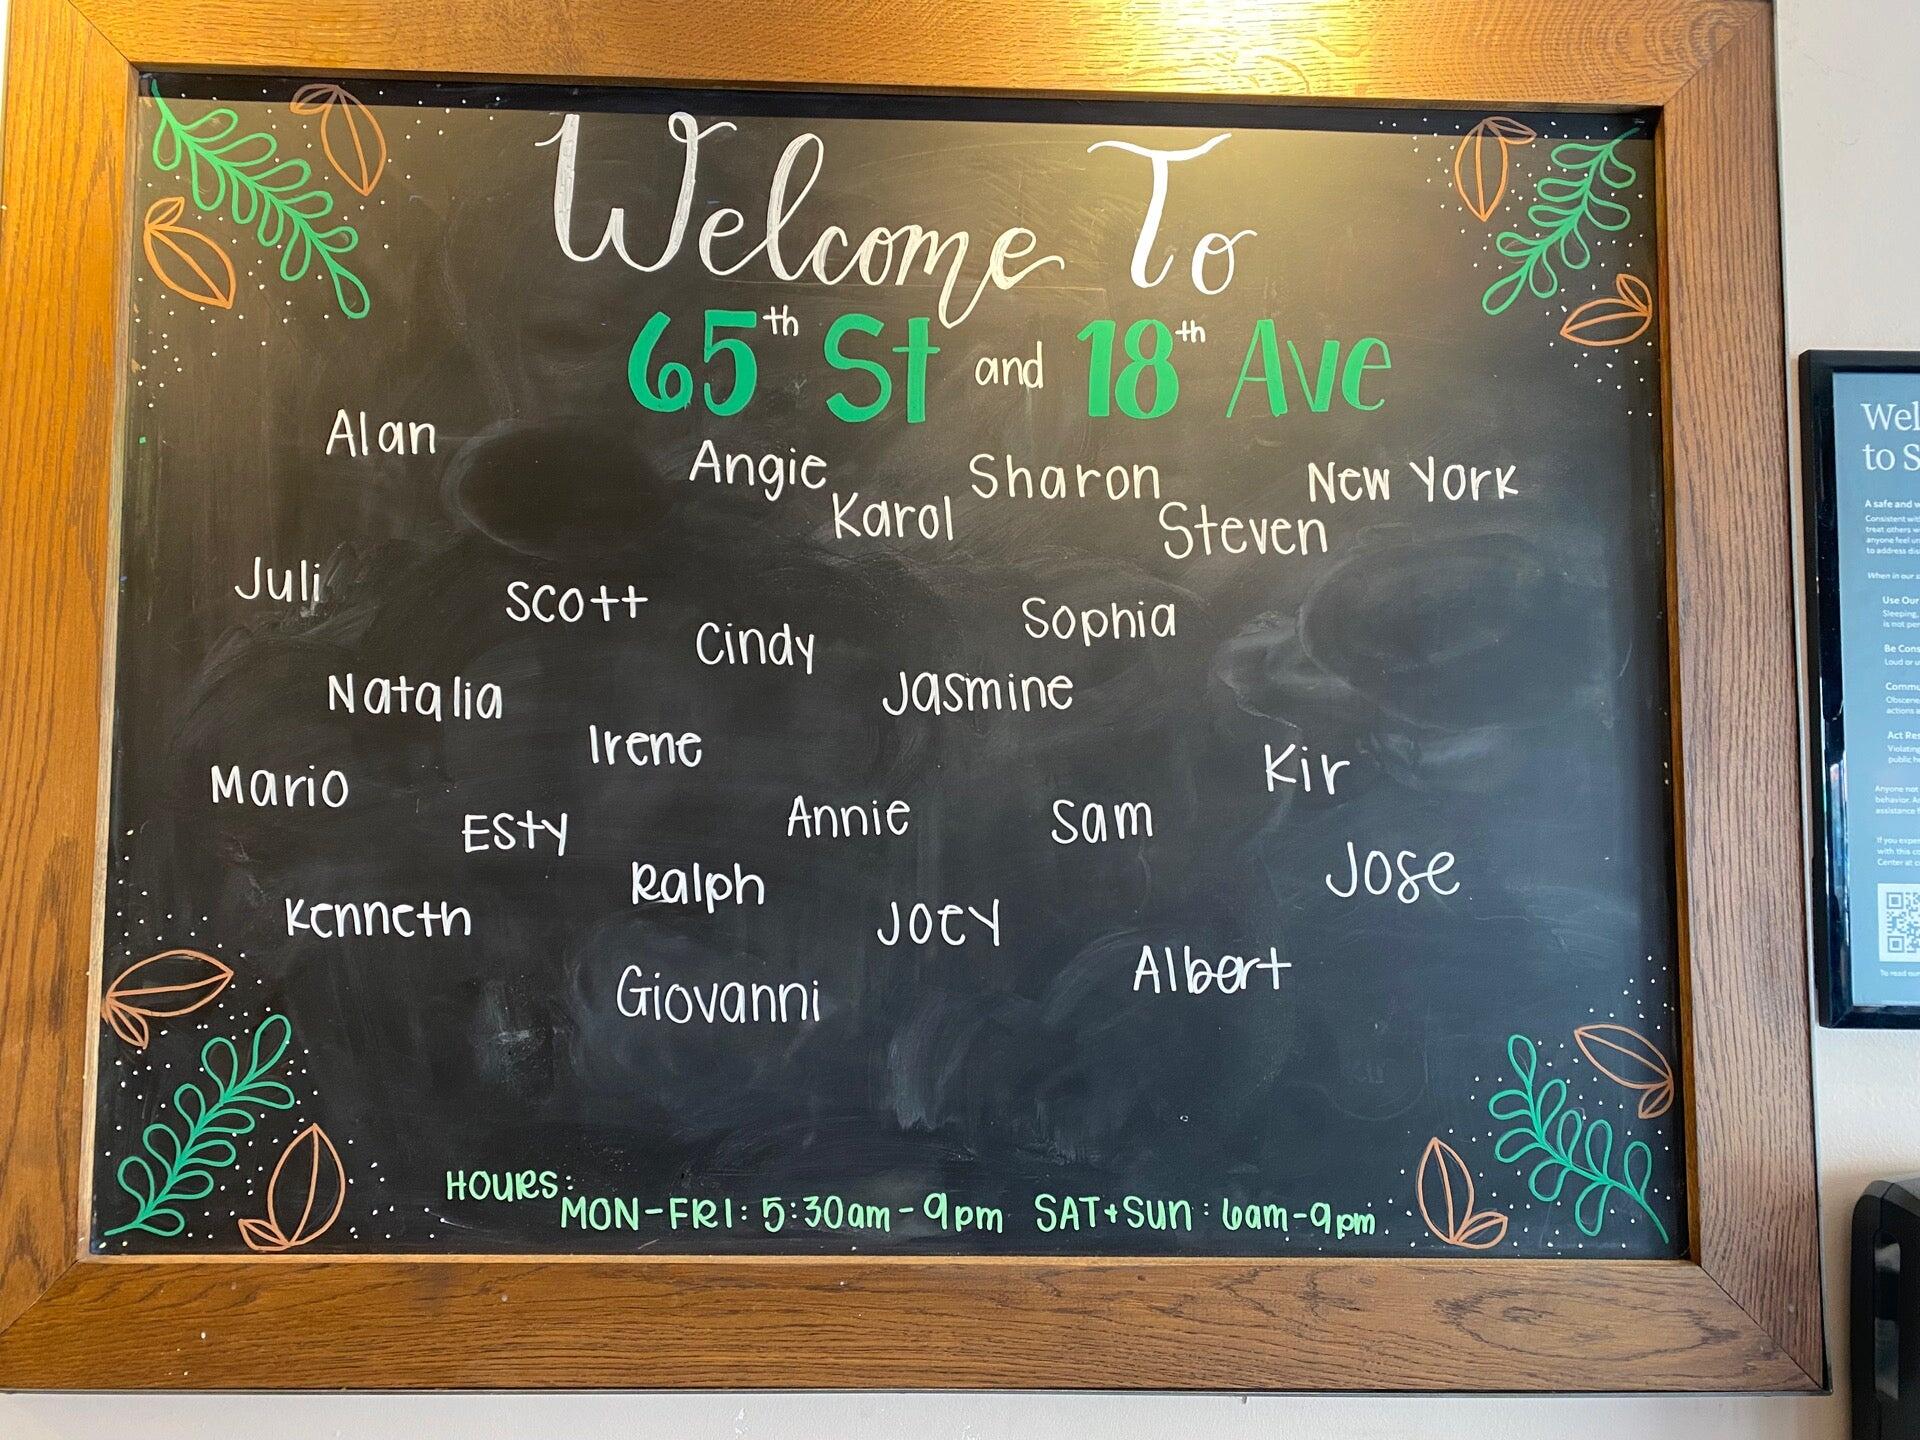 Welcome To
65th St and 18th Ave
Alan
Angie
Sharon
New York
Karol
Steven
Juli
Scott
Sophia
Cindy
Natalia
Jasmine
Irene
Kir
Mario
Annie
Sam
Esty
Ralph
Jose
Kenneth
Joey
Albert
Giovanni
HOURS:
MON-FRI: 5:30am-9pm SAT+SUN: 6am-9pm
Wel
to S
A safe and w
Consistent wit
treat others w
anyone feel un
to address dis
When in our s
Use Our
Sleeping,
is not per
Be Cons
Loud or u
Commu
Obscene
actions a
Act Res
Violating
public h
Anyone not
behavior. A
assistance f
If you exper
with this co
Center at c
To read our